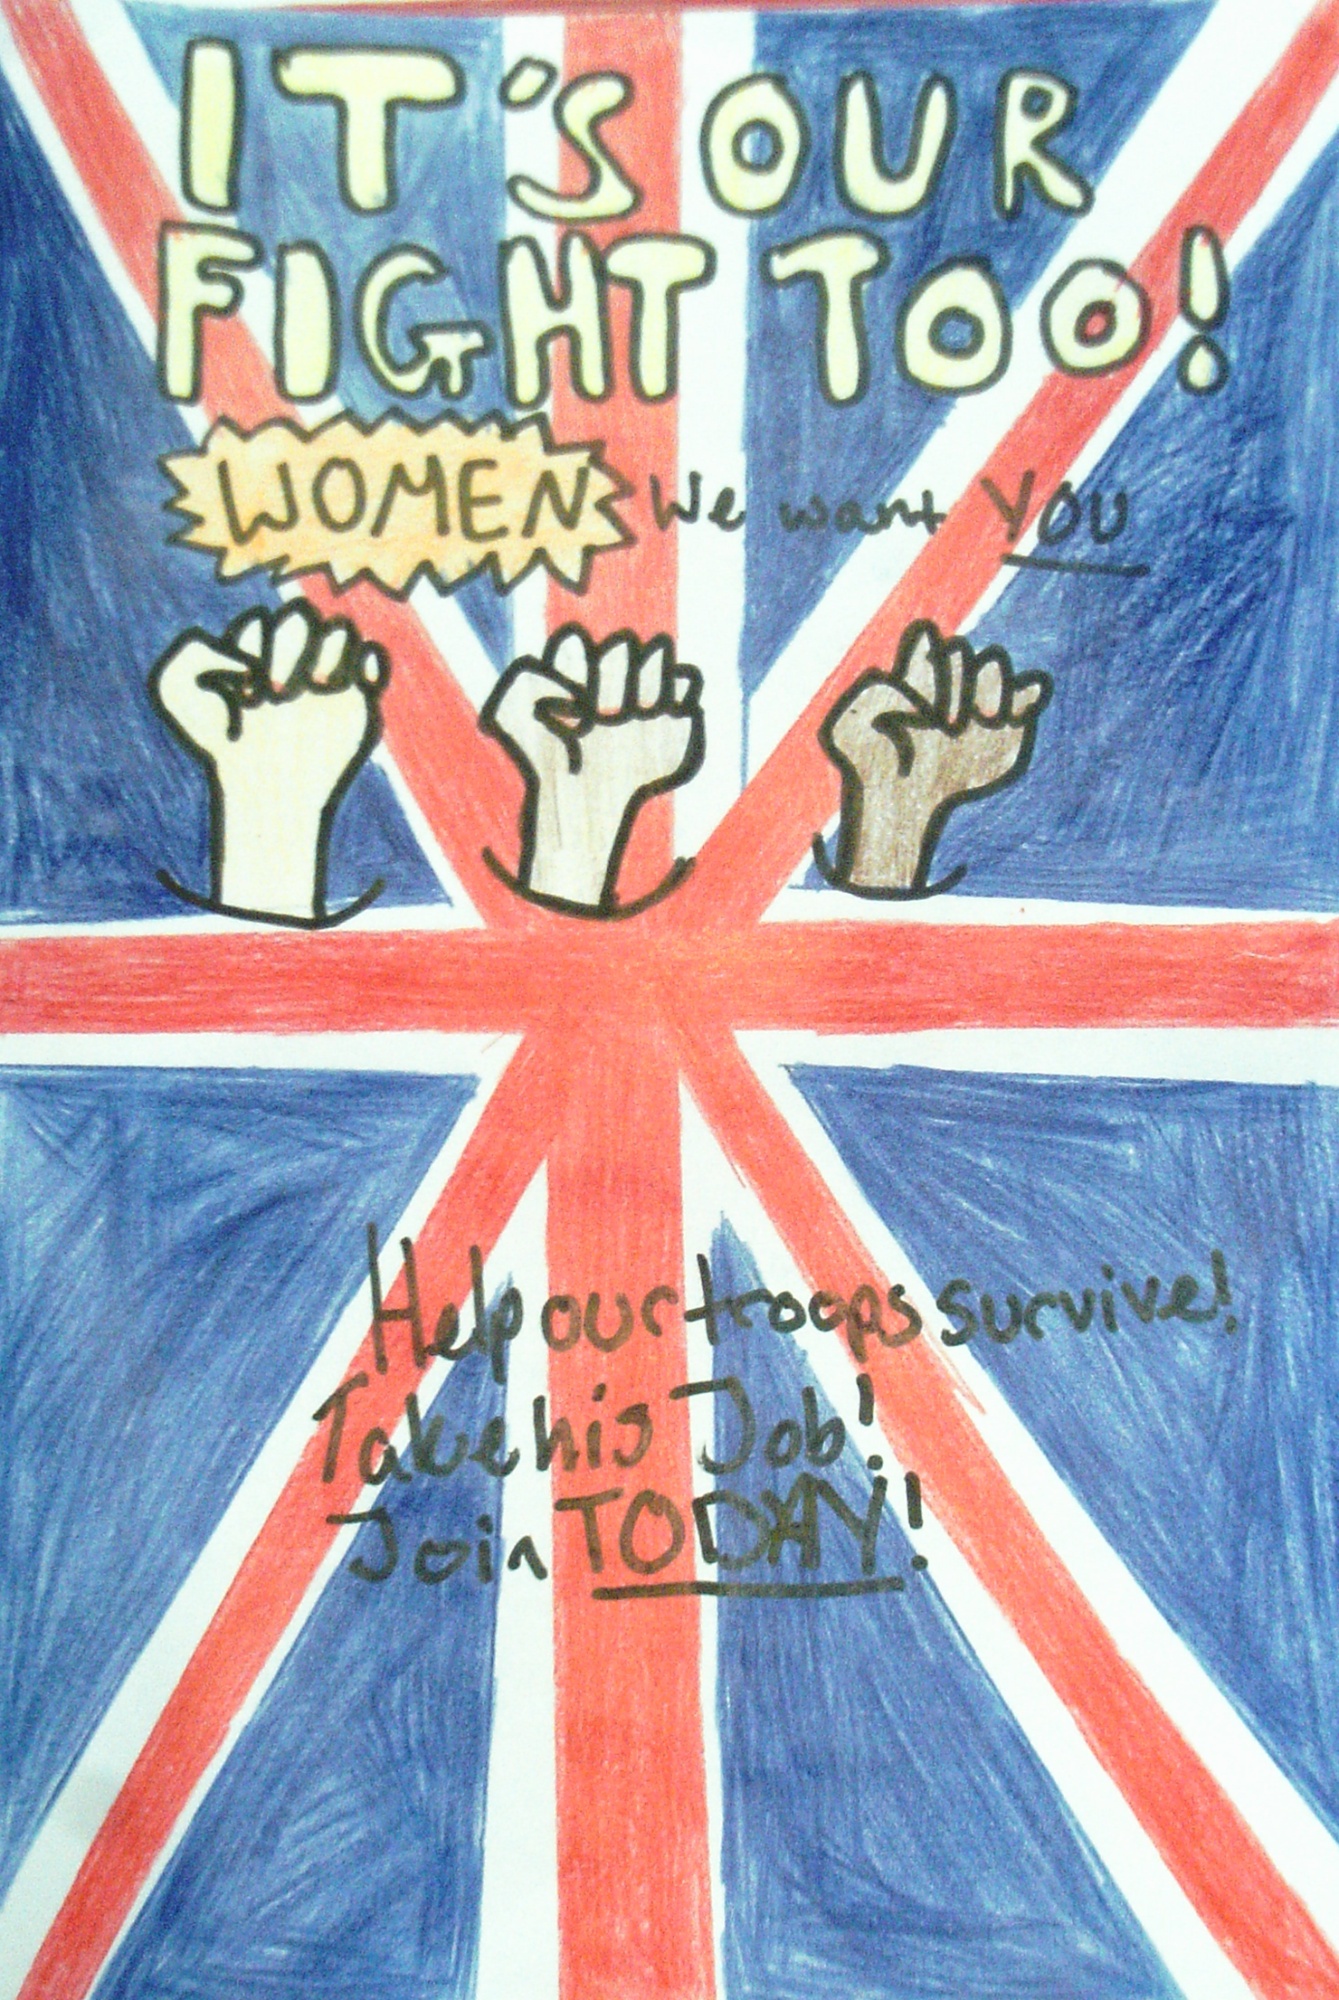 IT'S OUR
FIGHT TOO!
WOMEN We want YOU
Help our troops survive!
Take his Job!
Join TODAY!